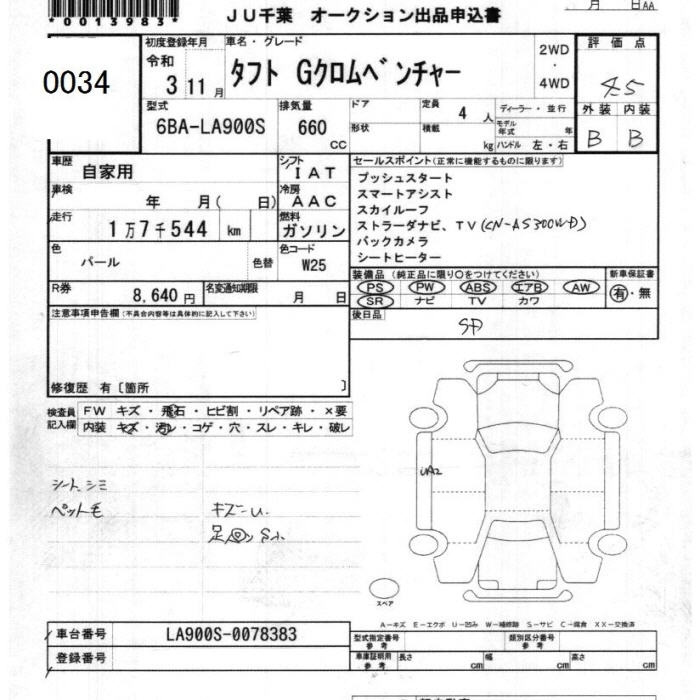 *0013983*
月 日AA
JU千葉 オークション出品申込書
0034
初度登録年月
令和
3 11月
車名・グレード
タフト Gクロムベンチャー
2WD
・
4WD
評価点
4.5
外装 内装
B B
型式
6BA-LA900S
排気量
660
CC
ドア
形状
定員
4人
積載
kg
ディーラー・並行
モデル年式 年
ハンドル 左・右
車歴
自家用
シフト
IAT
車検
年 月( 日)
冷房
AAC
走行
1万7千544 km
燃料
ガソリン
色
パール
色替
色コード
W25
R券
8,640円
名変通知期限
月 日
セールスポイント(正常に機能するものに限ります)
プッシュスタート
スマートアシスト
スカイルーフ
ストラーダナビ、TV(CN-AS300WD)
バックカメラ
シートヒーター
装備品(純正品に限り○をつけてください)
PS PW ABS エアB AW
SR ナビ TV カワ
新車保証書
有・無
後日品
SD
注意事項申告欄(不具合内容等は具体的に記入して下さい)
修復歴 有〔箇所 〕
検査員記入欄
FW キズ・飛石・ヒビ割・リペア跡・×要
内装 キズ・汚レ・コゲ・穴・スレ・キレ・破レ
シート、シミ
ペット毛
キズーU.
UA2
スペア
A-キズ E-エクボ U-凹み W-補修跡 S-サビ C-腐食 XX-交換済
車台番号
LA900S-0078383
登録番号
型式指定番号
参考
類別区分番号
参考
車庫証明用
参考
長さ cm
幅 cm
高さ cm